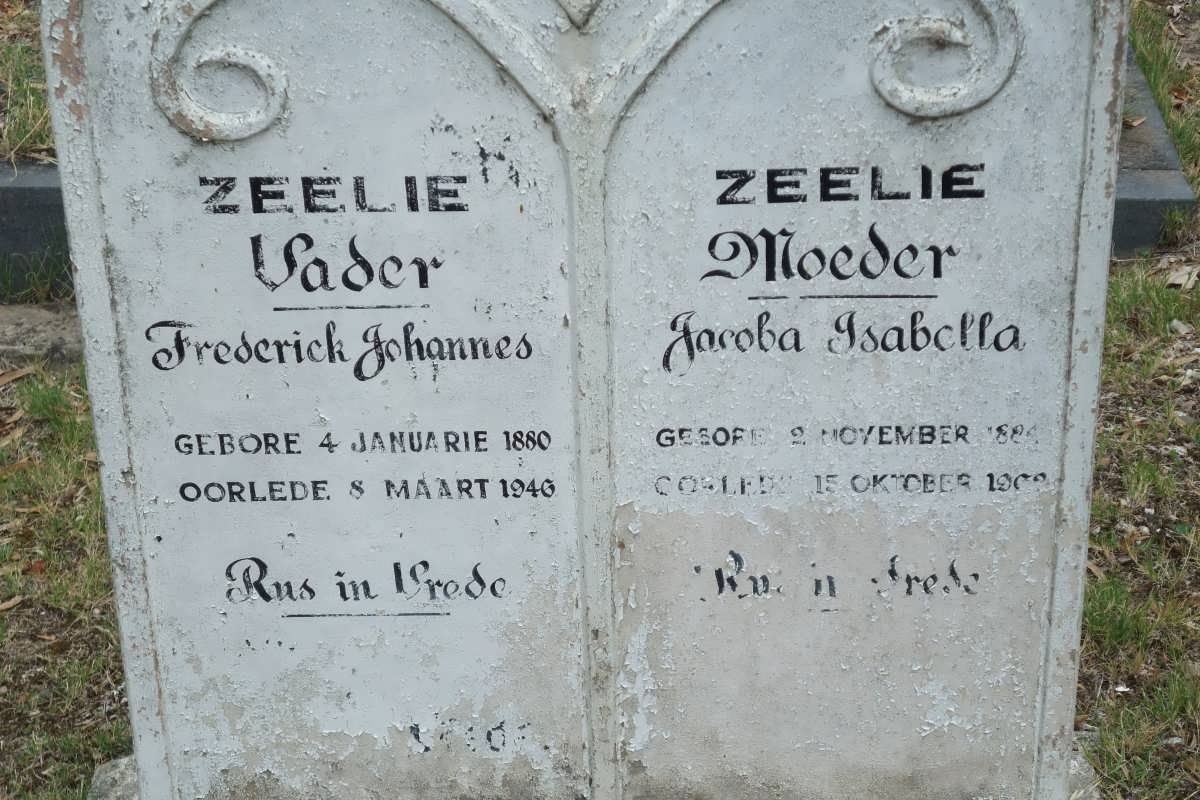 ZEELIE
Vader
Frederick Johannes
GEBORE 4 JANUARIE 1880
OORLEDE 8 MAART 1946
Rus in Vrede
ZEELIE
Moeder
Jacoba Isabella
GEBORE 2 NOVEMBER
OORLEDE 15 OKTOBER
Rus in Vrede